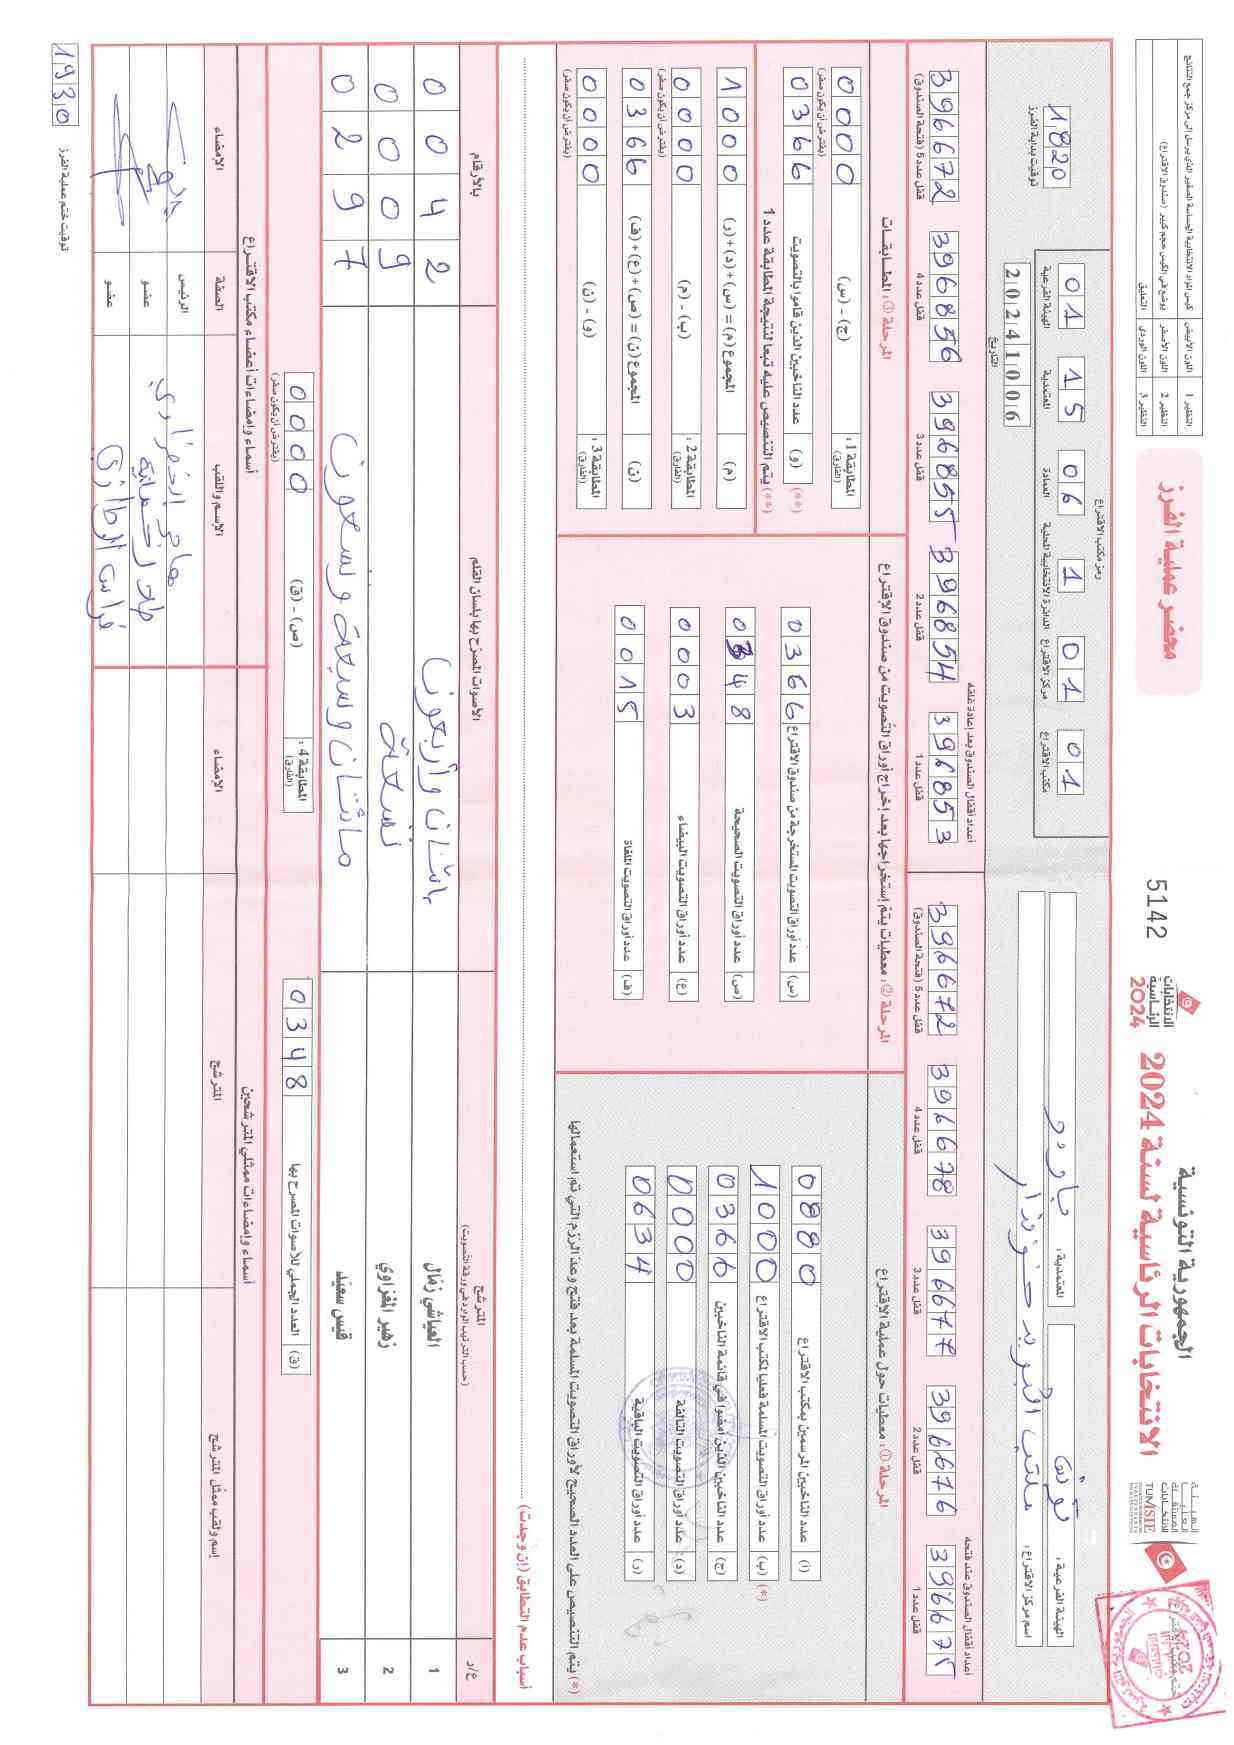 الجمهورية التونسية
الانتخابات الرئاسية لسنة 2024
الانتخابات
الرئاسية
2024
5142
محضر عملية الفرز
TUNISIE
النظير 1 اللون الأبيض كيس المواد الانتخابية الحساسة الصغير الذي يرسل إلى مركز جمع النتائج
النظير 2 اللون الأصفر يوضع في الكيس حجم كبير (صندوق الاقتراع)
النظير 3 اللون الوردي التعليق
الهيئة الفرعية : تونس
المعتمدية : باردو
اسم مركز الاقتراع :
رمز مكتب الاقتراع
01 15 06 1 01 01
الهيئة الفرعية المعتمدية العمادة الدائرة الانتخابية المحلية مركز الاقتراع مكتب الاقتراع
20241006
التاريخ
1820
توقيت بداية الفرز
أعداد أقفال الصندوق عند فتحه
396675 396676 396677 396678 396672
قفل عدد 1 قفل عدد 2 قفل عدد 3 قفل عدد 4 قفل عدد 5 (فتحة الصندوق)
أعداد أقفال الصندوق بعد إعادة غلقه
396853 396854 396855 396856 396672
قفل عدد 1 قفل عدد 2 قفل عدد 3 قفل عدد 4 قفل عدد 5 (فتحة الصندوق)
المرحلة ①: معطيات حول عملية الاقتراع
(أ) عدد الناخبين المرسمين بمكتب الاقتراع 0880
(*) (ب) عدد أوراق التصويت المسلمة فعليا لمكتب الاقتراع 1000
(ج) عدد الناخبين الذين أمضوا في قائمة الناخبين 0366
(د) عدد أوراق التصويت التالفة 0000
(ر) عدد أوراق التصويت الباقية 0634
(*) يتم التنصيص على العدد الصحيح لأوراق التصويت المسلمة بعد فتح وعدّ الرزم التي تم استعمالها
المرحلة ②: معطيات يتم إستخراجها بعد إخراج أوراق التصويت من صندوق الاقتراع
(س) عدد أوراق التصويت المستخرجة من صندوق الاقتراع 0366
(ص) عدد أوراق التصويت الصحيحة 0348
(ع) عدد أوراق التصويت البيضاء 0003
(ف) عدد أوراق التصويت الملغاة 0015
المرحلة ③: المطابقات
المطابقة 1 : (الفارق) (ج) - (س) 0000 (يفترض أن يكون صفر)
(**) (و) عدد الناخبين الذين قاموا بالتصويت 0366
(**) يتم التنصيص عليه تبعا لنتيجة المطابقة عدد 1
(م) المجموع (م) = (س) + (د) + (ر) 1000
المطابقة 2 : (الفارق) (ب) - (م) 0000 (يفترض أن يكون صفر)
(ن) المجموع (ن) = (ص) + (ع) + (ف) 0366
المطابقة 3 : (الفارق) (و) - (ن) 0000 (يفترض أن يكون صفر)
أسباب عدم التطابق (إن وجدت)
ع/د المترشح (حسب الترتيب الوارد في ورقة التصويت) الأصوات المصرح بها بلسان القلم بالأرقام
1 العياشي زمّال اثنان وأربعون 0042
2 زهير المغزاوي تسعة 0009
3 قيس سعيّد مائتان وسبعة وتسعون 0297
(ق) العدد الجملي للأصوات المصرح بها 0348
المطابقة 4 : (الفارق) (ص) - (ق) 0000 (يفترض أن يكون صفر)
أسماء وإمضاءات ممثلي المترشحين
إسم ولقب ممثل المترشح المترشح الإمضاء
أسماء وإمضاءات أعضاء مكتب الاقتراع
الإسم واللقب الصفة الإمضاء
الرئيس
عضو
عضو
1930
توقيت ختم عملية الفرز